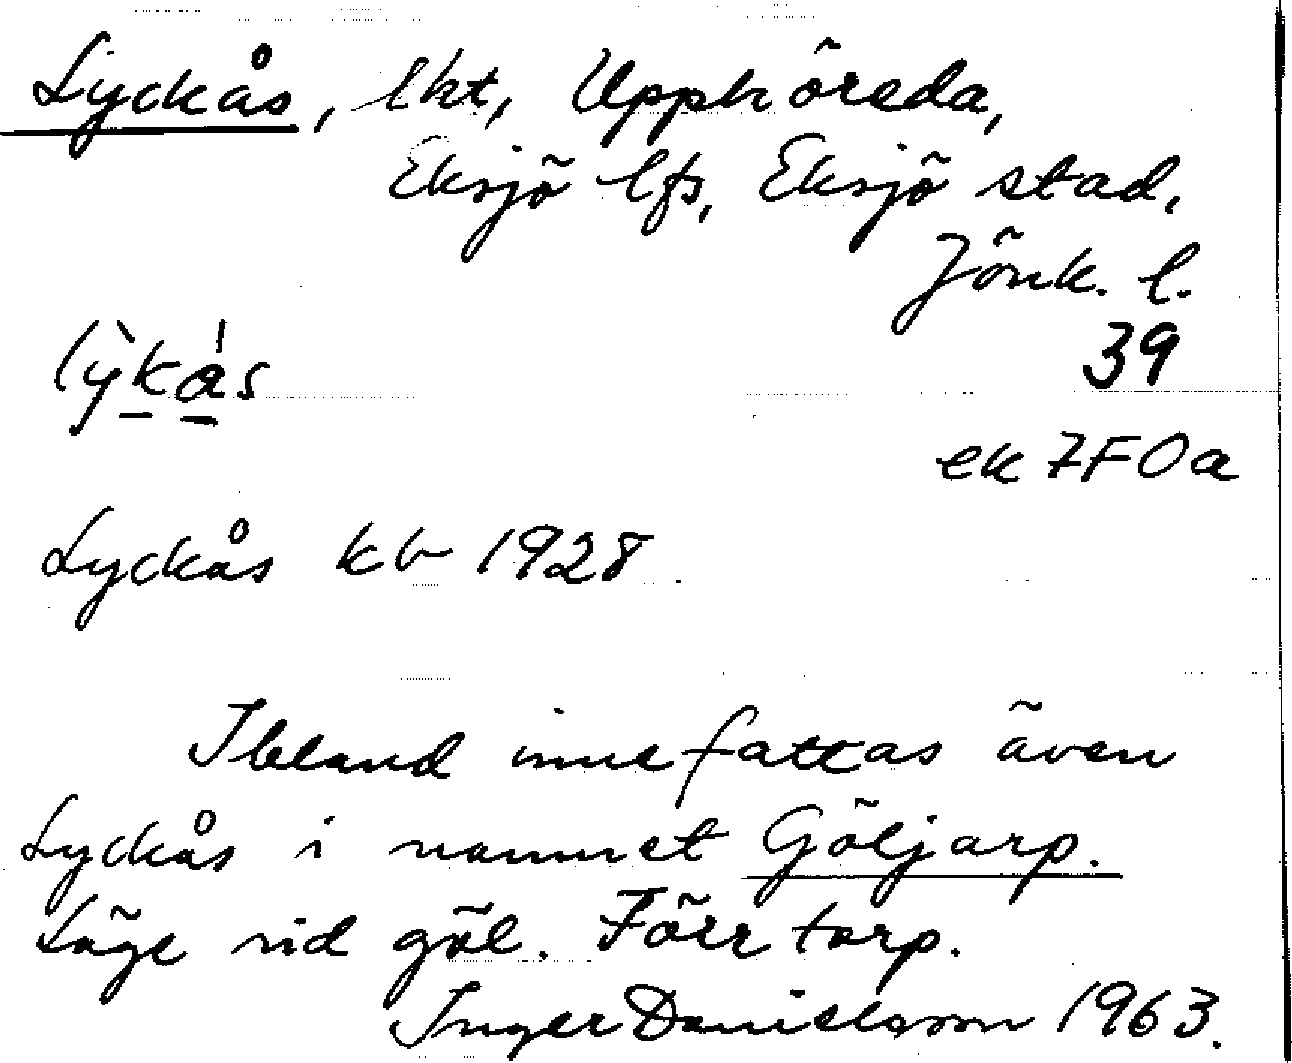 Lyckås, lht, Upphöreda,
Eksjö lfs, Eksjö stad,
Jönk. l.
39
lỳkás
ek 7F0a
Lyckås kb 1928
Ibland innefattas även
Lyckås i namnet Göljarp.
Läge vid göl. Förr torp.
Inger Danielsson 1963.